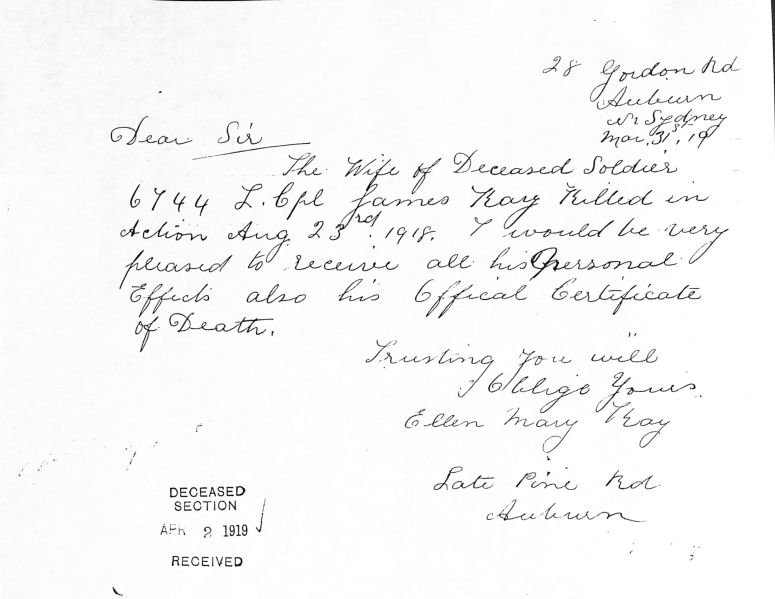 28 Gordon Rd
Auburn
Nr Sydney
Mar. 31st, 19
Dear Sir
The Wife of Deceased Soldier
6744 L. Cpl James Kay Killed in
Action Aug 23rd. 1918. I would be very
pleased to receive all his Personal
Effects also his Offical Certificate
of Death.
Trusting you will
Oblige Yours.
Ellen Mary Kay
Late Pine Rd
Auburn
DECEASED
SECTION
APR 2 1919
RECEIVED